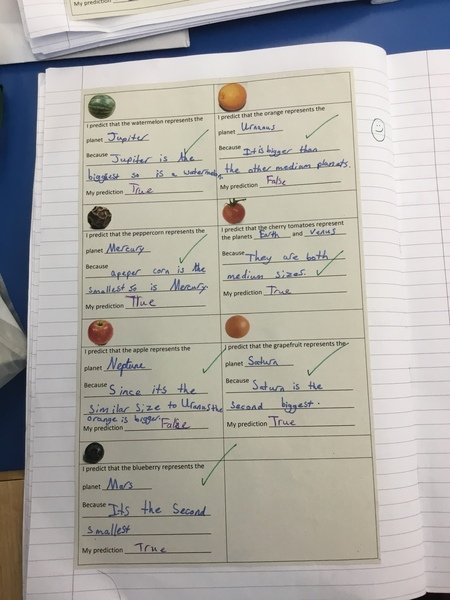 My prediction
I predict that the watermelon represents the
planet Jupiter
Because Jupiter is the
biggest so is a watermelon
My prediction True
I predict that the orange represents the
planet Urannus
Because It is bigger than
the other medium planets
My prediction False
I predict that the peppercorn represents the
planet Mercury
Because apeper corn is the
smallest so is Mercury
My prediction True
I predict that the cherry tomatoes represent
the planets Earth and Venus
Because They are both
medium sizes.
My prediction True
I predict that the apple represents the
planet Neptune
Because Since its the
similar size to Urannus the
orange is bigger.
My prediction False
I predict that the grapefruit represents the
planet Saturn
Because Saturn is the
second biggest.
My prediction True
I predict that the blueberry represents the
planet Mars
Because Its the Second
smallest
My prediction True